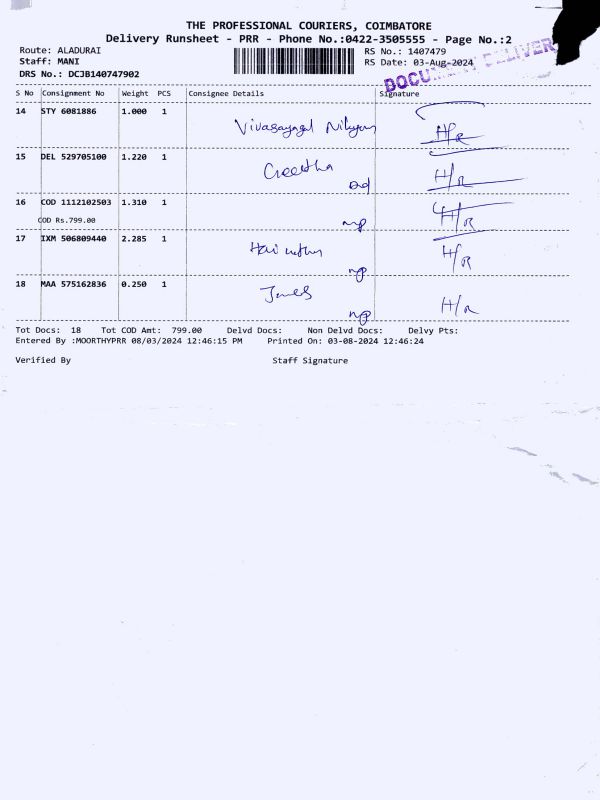 THE PROFESSIONAL COURIERS, COIMBATORE
Delivery Runsheet - PRR - Phone No.:0422-3505555 - Page No.:2
Route: ALADURAI
RS No.: 1407479
Staff: MANI
RS Date: 03-Aug-2024
DRS No.: DCJB140747902
S No Consignment No Weight PCS Consignee Details Signature
14 STY 6081886 1.000 1
H/R
15 DEL 529705100 1.220 1
Geetha
H/R
16 COD 1112102503 1.310 1
COD Rs.799.00
H/R
17 IXM 506809440 2.285 1
H/R
18 MAA 575162836 0.250 1
James
H/R
Tot Docs: 18 Tot COD Amt: 799.00 Delvd Docs: Non Delvd Docs: Delvy Pts:
Entered By :MOORTHYPRR 08/03/2024 12:46:15 PM Printed On: 03-08-2024 12:46:24
Verified By Staff Signature